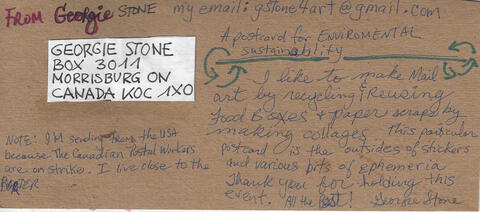 FROM Georgie STONE my email: gstone4art@gmail.com
GEORGIE STONE
BOX 3011
MORRISBURG ON
CANADA K0C 1X0
NOTE: I'M sending from the USA
because the Canadian Postal Workers
are on strike. I live close to the
BORDER
A postcard for ENVIROMENTAL
sustainability
I like to make Mail
art by recycling & REusing
Food Boxes & paper scraps by
making collages. This particular
postcard is the outsides of stickers
and various bits of ephemeria
Thank you for holding this
event. All the Best! Georgie Stone